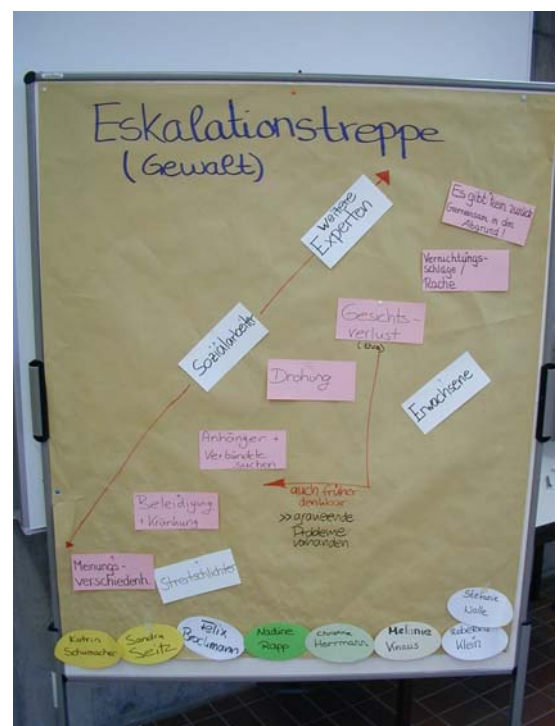 Eskalationstreppe
(Gewalt)
Es gibt kein zurück
Gemeinsam in den
Abgrund!
weitere
Experten
Vernichtungs-
schläge /
Rache
Gesichts-
verlust
Sozialarbeiter
Drohung
Erwachsene
Anhänger +
Verbündete
suchen
auch früher
denkbar
>> gravierende
Probleme
vorhanden
Beleidigung
+ Kränkung
Meinungs-
verschiedenh.
Streitschlichter
Stefanie
Nolle
Katrin
Schumacher
Sandra
Seitz
Felix
Brockmann
Nadine
Rapp
Christina
Herrmann
Melanie
Vinaus
Rebekka
Klein